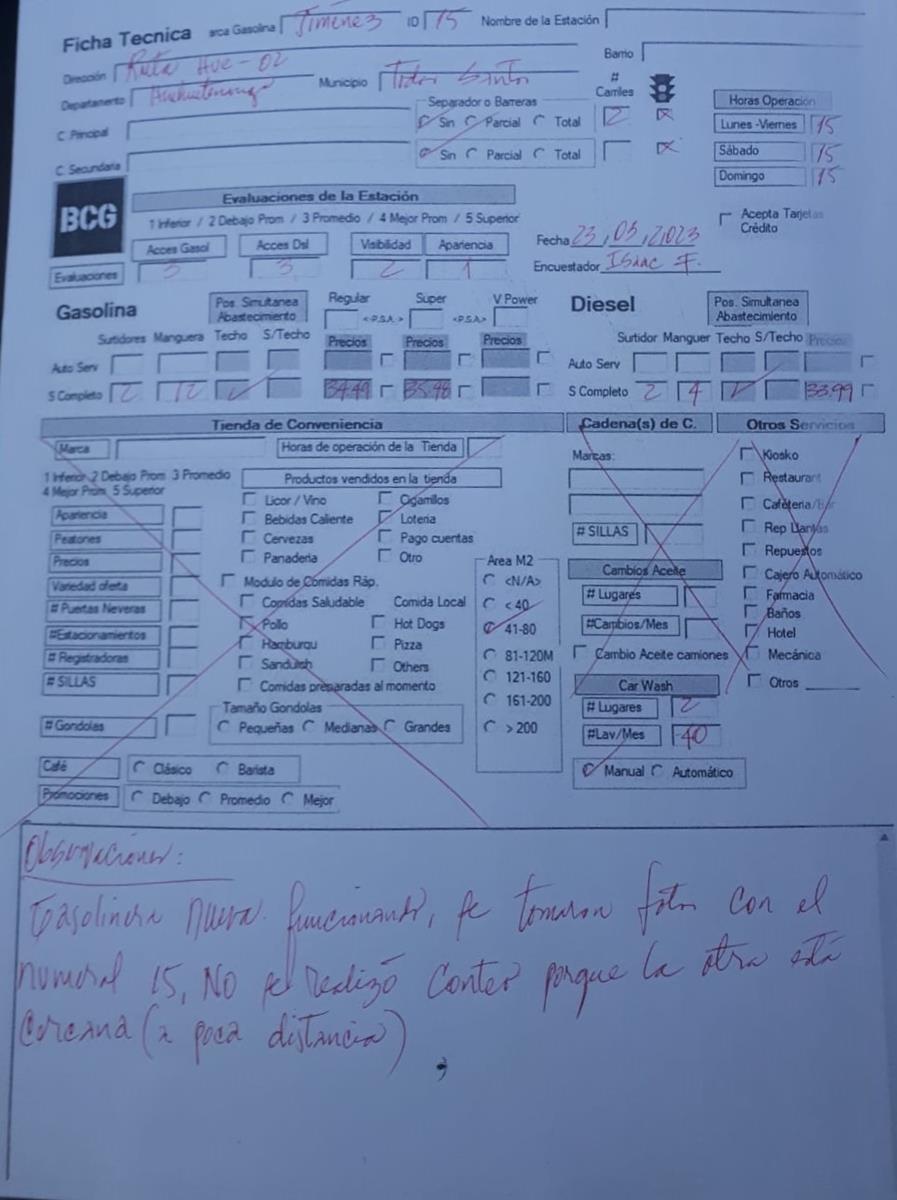 Ficha Tecnica arca Gasolina Jimenez ID 15 Nombre de la Estación
Dirección Ruta Hue-02 Barrio
Departamento Huehuetenango Municipio Todos Santos # Carriles
C. Principal Separador o Barreras Sin Parcial Total 2
C. Secundaria Sin Parcial Total
Horas Operación
Lunes -Viernes 15
Sábado 15
Domingo 15
BCG
Evaluaciones de la Estación
1 Inferior / 2 Debajo Prom / 3 Promedio / 4 Mejor Prom / 5 Superior
Acces Gasol Acces Dsl Visibilidad Apariencia
Evaluaciones 3 3 2 1
Fecha 23,03,2023
Encuestador Isaac F.
Acepta Tarjetas Crédito
Gasolina Pos. Simultanea Abastecimiento Regular Super V Power
<-P.S.A.-> <-P.S.A.->
Surtidores Manguera Techo S/Techo Precios Precios Precios
Auto Serv
S Completo 2 12 34.49 35.98
Diesel Pos. Simultanea Abastecimiento
Surtidor Manguer Techo S/Techo Precios
Auto Serv
S Completo 2 4 33.99
Tienda de Conveniencia
Marca Horas de operación de la Tienda
1 Inferior 2 Debajo Prom 3 Promedio
4 Mejor Prom 5 Superior
Apariencia
Peatones
Precios
Variedad oferta
# Puertas Neveras
#Estacionamientos
# Registradoras
# SILLAS
# Gondolas
Productos vendidos en la tienda
Licor / Vino Cigarrillos
Bebidas Caliente Loteria
Cervezas Pago cuentas
Panaderia Otro
Modulo de Comidas Ráp.
Comidas Saludable Comida Local
Pollo Hot Dogs
Hamburqu Pizza
Sandwich Others
Comidas preparadas al momento
Tamaño Gondolas
Pequeñas Medianas Grandes
Area M2
<N/A>
< 40
41-80
81-120M
121-160
161-200
> 200
Café Clásico Barista
Promociones Debajo Promedio Mejor
Cadena(s) de C.
Marcas:
# SILLAS
Cambios Aceite
# Lugares
#Cambios/Mes
Cambio Aceite camiones
Car Wash
# Lugares 2
#Lav/Mes 40
Manual Automático
Otros Servicios
Kiosko
Restaurant
Cafeteria/Bar
Rep Llantas
Repuestos
Cajero Automático
Farmacia
Baños
Hotel
Mecánica
Otros
Observaciones:
Gasolinera nueva funcionando, se tomaron fotos con el
numeral 15, No se realizó conteo porque la otra está
cercana (a poca distancia)